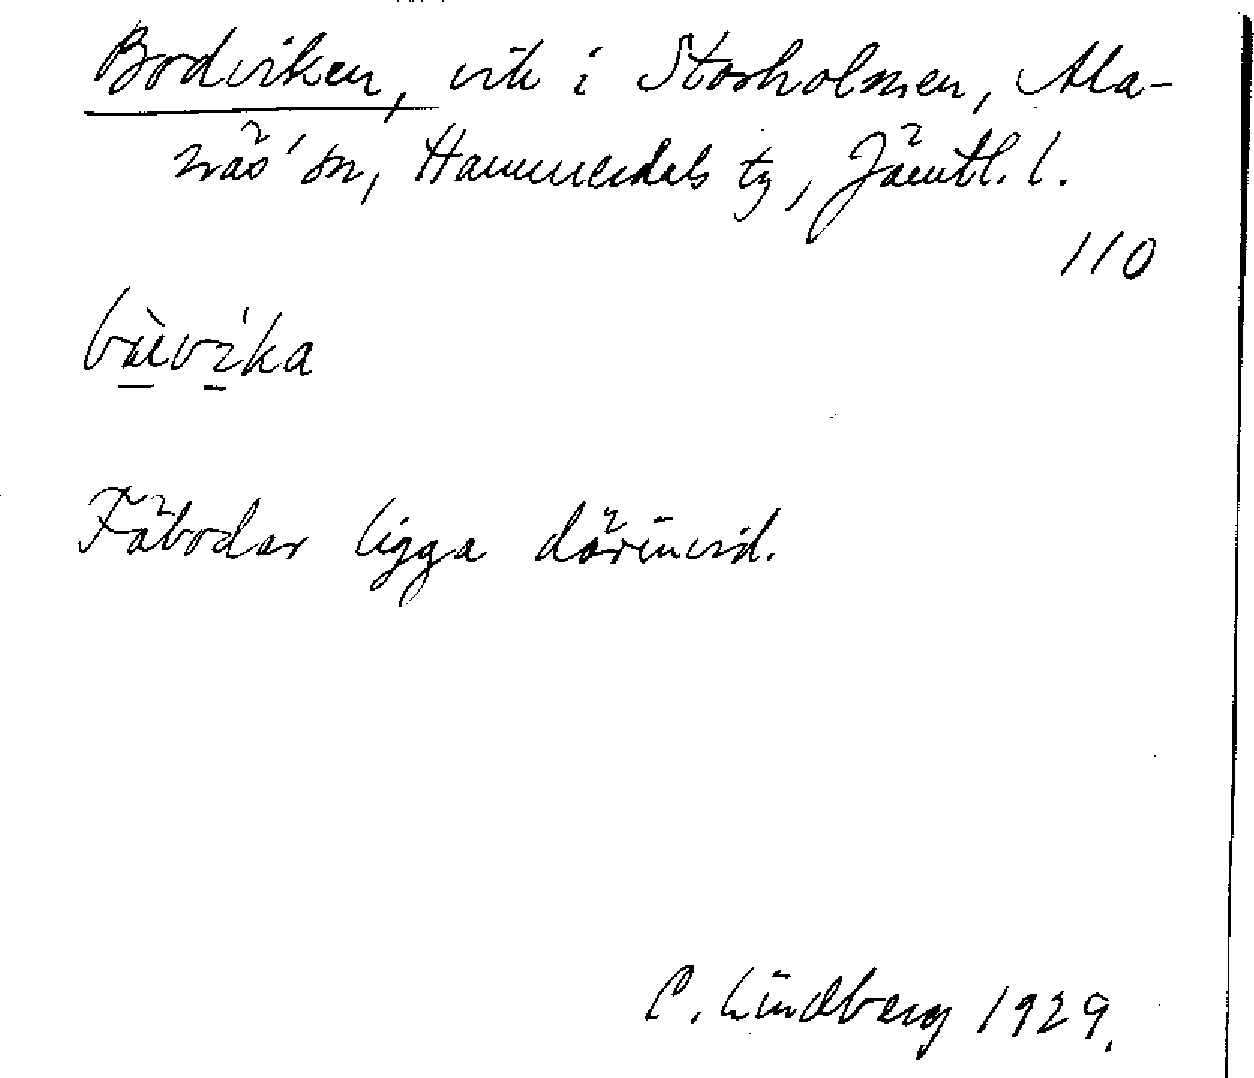 Bodviken, vik i Storholmen, Ala-
näs' sn, Hammerdals tg, Jämtl. l.
110
bu̱̇̀vi̱̍ka
Fäbodar ligga därinvid.
C. Lindberg 1929.